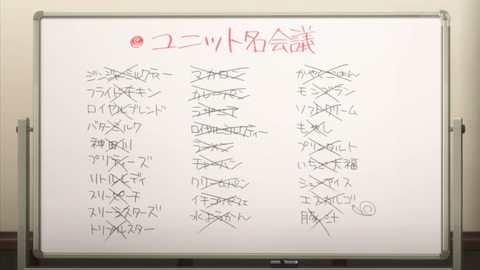 ユニット名会議
ジンジャーミルクティー
フライドチキン
ロイヤルブレンド
バターミルク
神田川
プリティーズ
リトルレディ
スリーピーチ
スリーシスターズ
トリプルスター
マカロン
カレーパン
ラザニア
ロイヤルミルクティー
クリームパン
イチゴパフェ
水ようかん
かやくごはん
モンブラン
ソフトクリーム
もやし
プリンタルト
いちご大福
シューアイス
エスカルゴ
豚汁